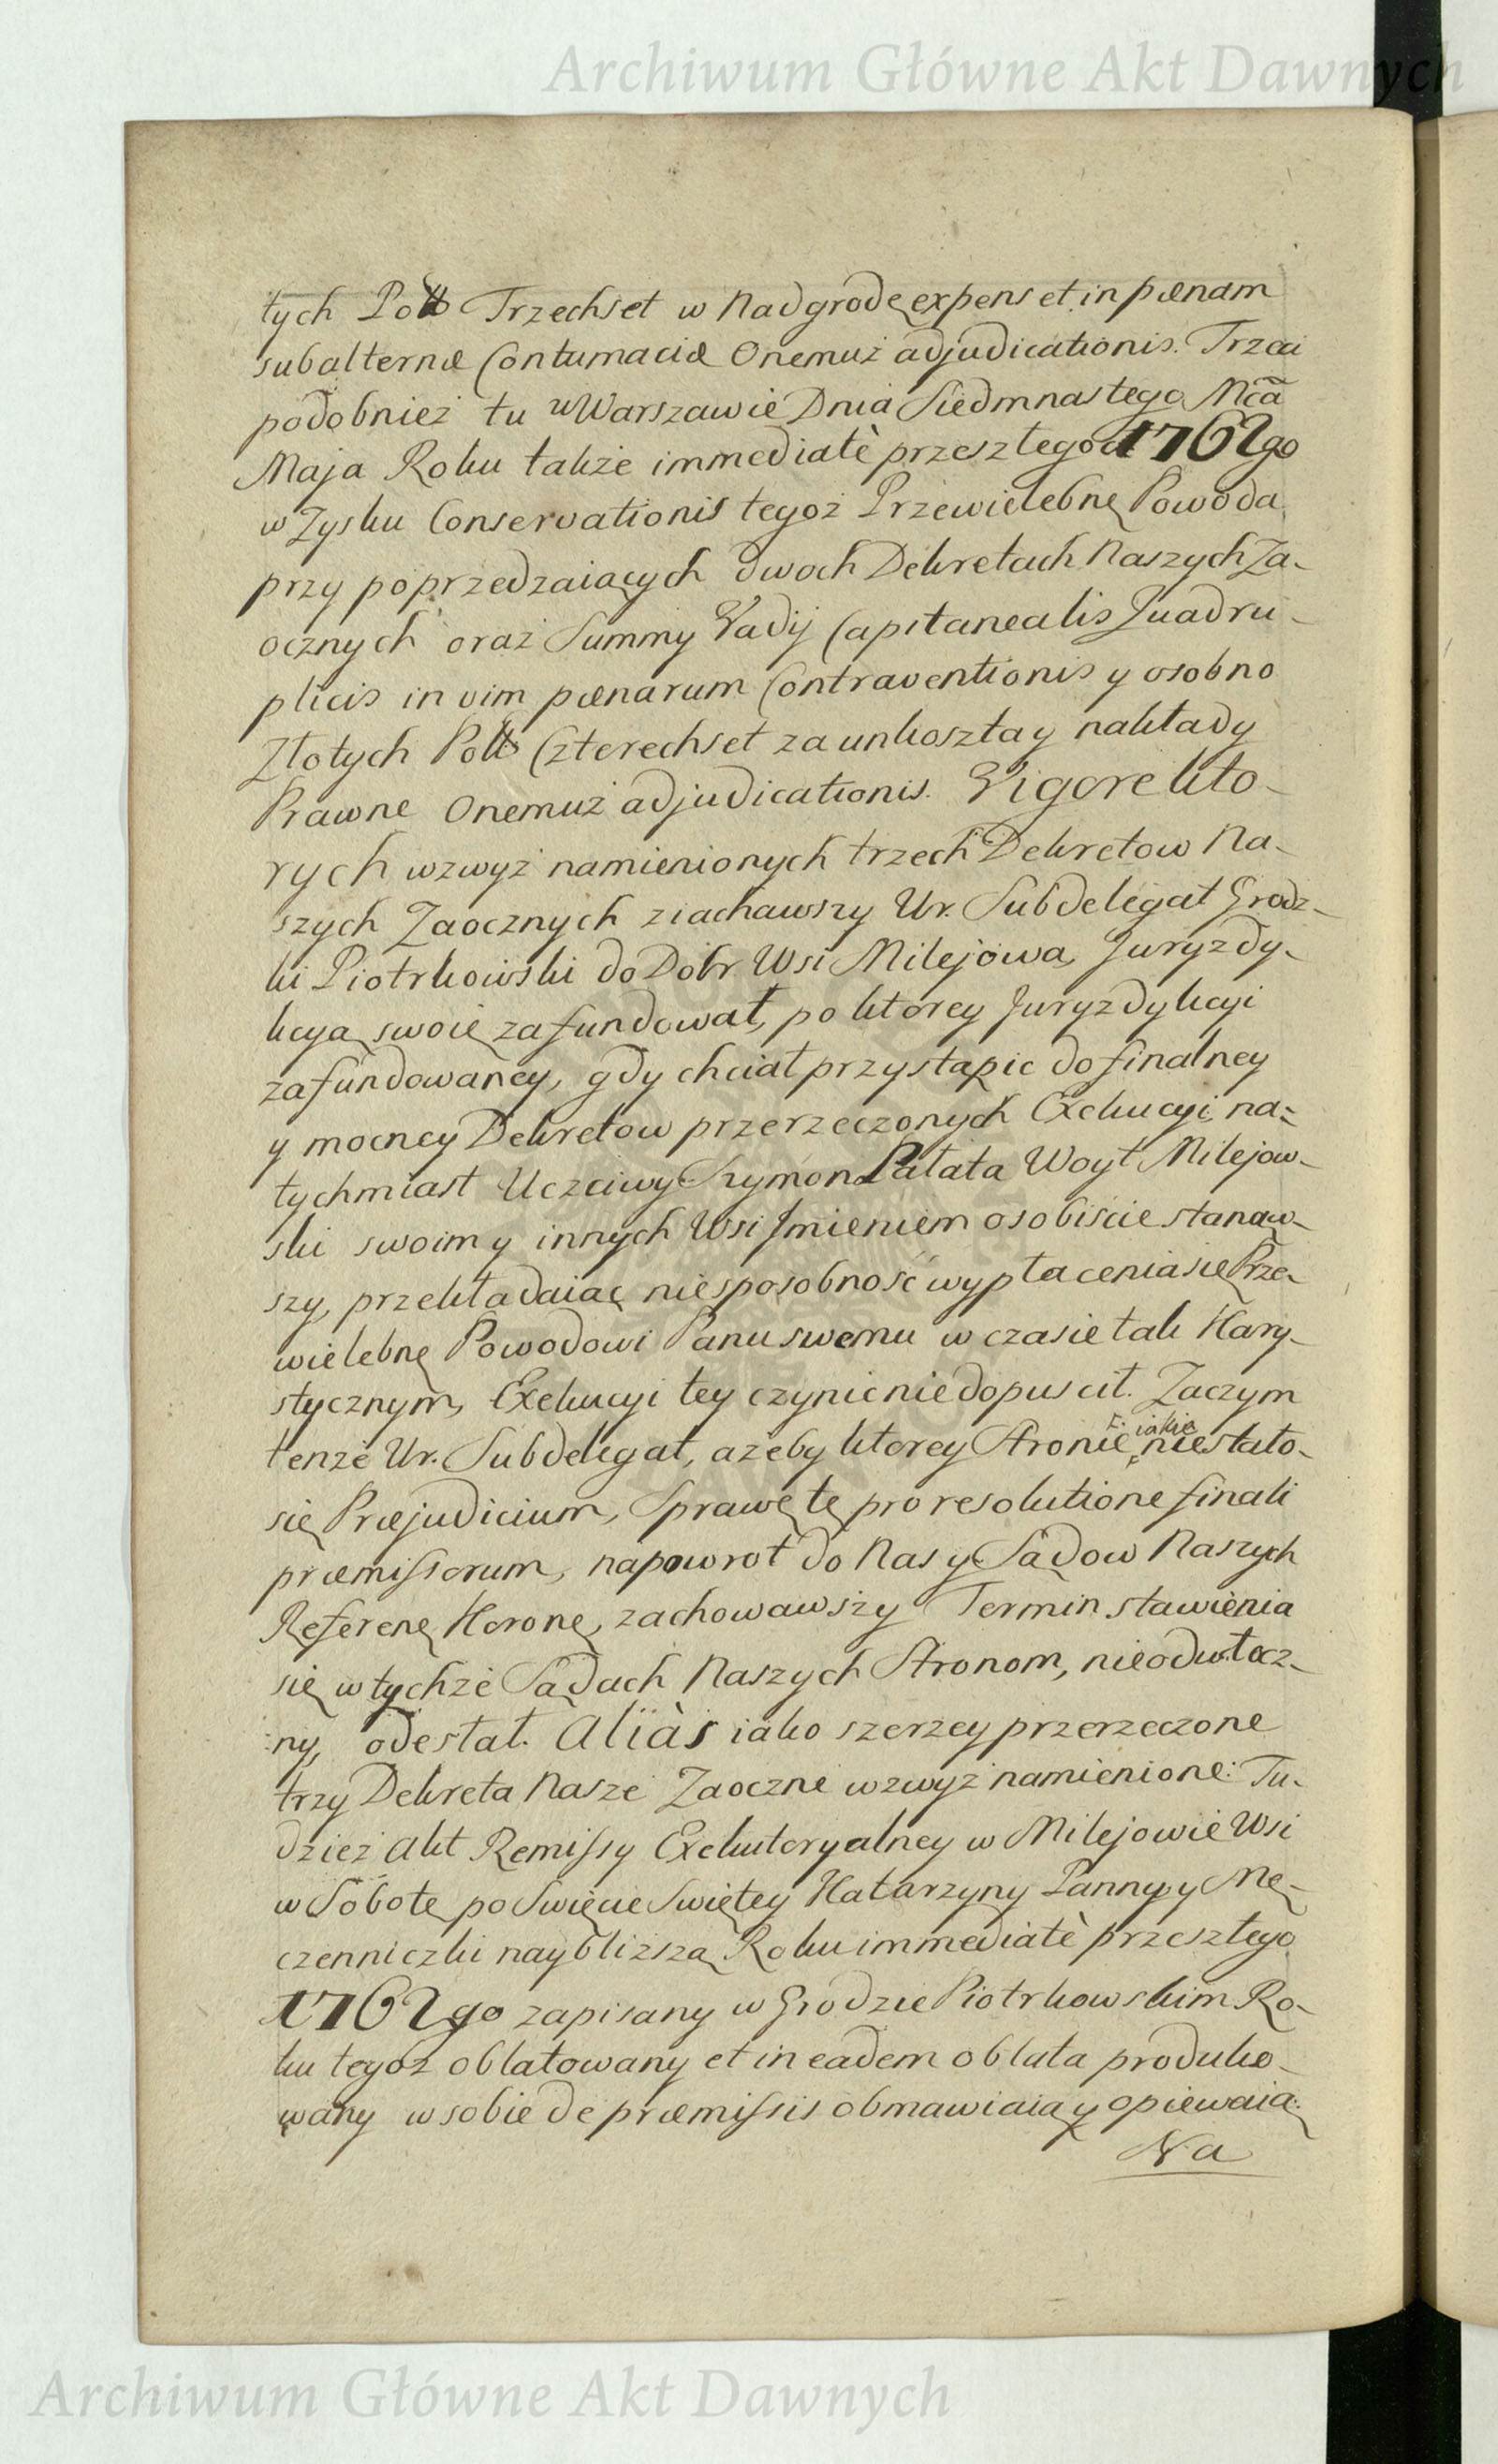 Archiwum Główne Akt Dawnych
tych Poll Trzechset w Nadgrodę expens et in pœnam
subalternæ Contumaciæ Onemuż adjudicationis. Trzeci
podobnież tu w Warszawie Dnia Siedmnastego Mca
Maja Roku także immediatè przeszłego 1762go
w Zysku Conservationis tegoż Przewielebne Powoda
przy poprzedzaiących dwoch Dekretach Naszych Za-
ocznych oraz Summy Vadij Capitanealis Quadru-
plicis in vim pœnarum Contraventionis y osobno
Złotych Poll Czterechset za unkoszta y nakłady
Prawne Onemuż adjudicationis. Vigore kto-
rych wzwyż namienionych trzech Dekretow Na-
szych Zaocznych ziachawszy Ur. Subdelegat Grodz-
ki Piotrkowski do Dobr Wsi Milejowa, Juryzdy-
kcyą swoię zafundował, po ktorey Juryzdykcyi
zafundowaney, gdy chciał przystąpic do finalney
y mocney Dekretow przerzeczonych Exekucyi, na-
tychmiast Uczciwy Szymon Pałata Woyt Milejow-
ski swoim y innych Wsi Jmieniem osobiście stanąw-
szy, przekładaiąc niesposobność wypłacenia się Prze-
wielebne Powodowi Panu swemu w czasie tak Kary-
stycznym, Exekucyi tey czynic nie dopuscił. Zaczym
tenże Ur. Subdelegat, ażeby ktorey Stronie jakie niestało-
się Præjudicium, Sprawę tę pro resolutione finali
præmissorum, napowrot do Nas y Sądow Naszych
Referen Koronę, zachowawszy Termin stawienia
się w tychże Sądach Naszych Stronom, nieodwłocz-
ny, odesłał. Aliàs iako szerzey przerzeczone
trzy Dekreta Nasze Zaoczne wzwyż namienione: Tu-
dzież Akt Remissy Exekutoryalney w Milejowie Wsi
w Sobotę po Swięcie Swiętey Katarzyny Panny y Mę-
czenniczki naybliższą Roku immediatè przeszłego
1762go zapisany w Grodzie Piotrkowskim Ro-
ku tegoż oblatowany et in eadem oblata produko-
wany w sobie de præmissis obmawiaią y opiewaią.
Na
Archiwum Główne Akt Dawnych